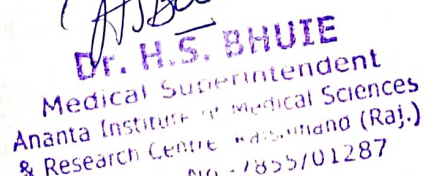 Dr. H.S. BHUIE
Medical Superintendent
Ananta Institute of Medical Sciences
& Research Centre (Raj.)
No. - 7855/01287